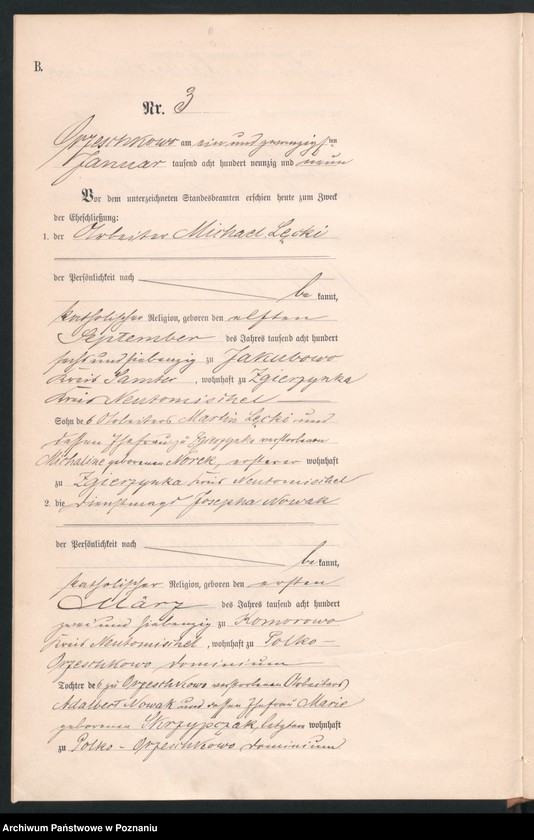 B.
Nr. 3
Orzeschkowo am ein und zwanzigsten
Januar tausend acht hundert neunzig und neun
Vor dem unterzeichneten Standesbeamten erschien heute zum Zweck
der Eheschließung:
1. der Arbeiter Michael Lęcki
der Persönlichkeit nach
be kannt,
katholischer Religion, geboren den elften
September des Jahres tausend acht hundert
sechs und siebenzig zu Jakubowo
Kreis Samter, wohnhaft zu Zgierzynka
Kreis Neutomischel
Sohn des Arbeiters Martin Lęcki und
dessen Ehefrau zu Zgierzynka verstorbenen
Michaline geborenen Norek, ersterer wohnhaft
zu Zgierzynka Kreis Neutomischel
2. die Dienstmagd Josepha Nowak
der Persönlichkeit nach
be kannt,
katholischer Religion, geboren den ersten
März des Jahres tausend acht hundert
zwei und siebenzig zu Komorowo
Kreis Neutomischel, wohnhaft zu Polko-
Orzeschkowo Dominium
Tochter des zu Orzeschkowo verstorbenen Arbeiters
Adalbert Nowak und dessen Ehefrau Marie
geborenen Skrzypczak, letztere wohnhaft
zu Polko-Orzeschkowo Dominium
Archiwum Państwowe w Poznaniu